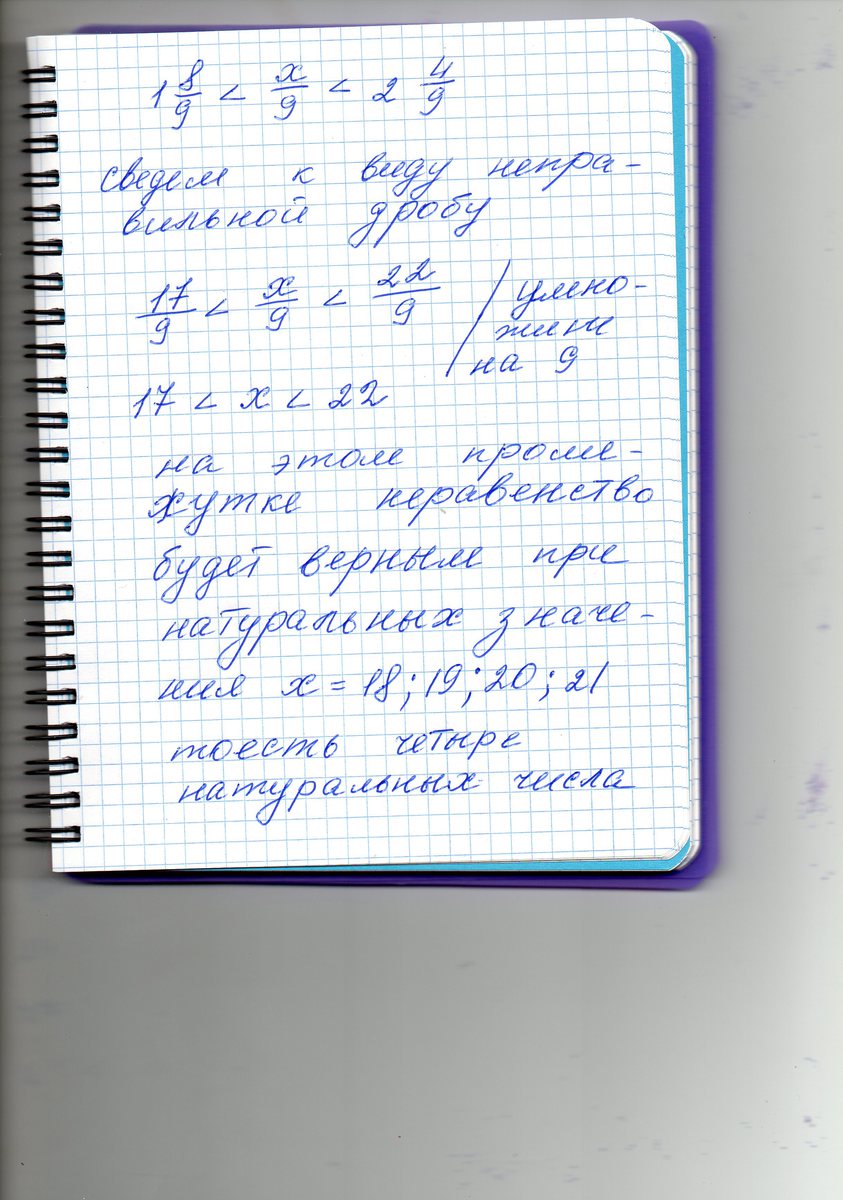 1 8/9 < x/9 < 2 4/9
сведем к виду непра-
вильной дробу
17/9 < x/9 < 22/9 / умно-
жим
на 9
17 < x < 22
на этом проме-
жутке неравенство
будет верным при
натуральных значе-
ния x = 18; 19; 20; 21
тоесть четыре
натуральных числа